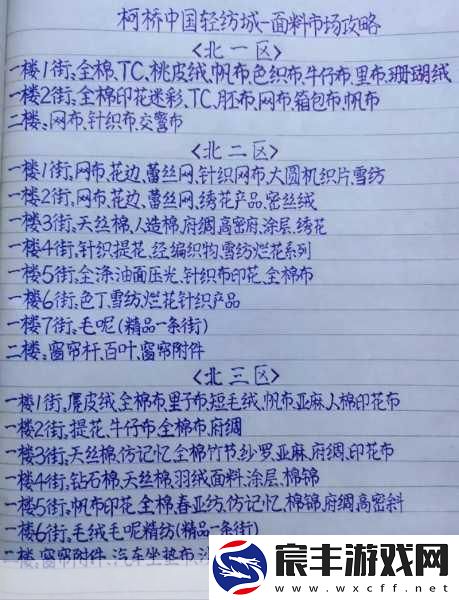 柯桥中国轻纺城-面料市场攻略
<北一区>
一楼1街、全棉、TC、桃皮绒、帆布、色织布、牛仔布、里布、珊瑚绒
一楼2街、全棉印花迷彩、TC、胚布、网布、箱包布、帆布
二楼、网布、针织布、交警布
<北二区>
一楼1街、网布、花边、蕾丝网、针织网布、大圆机织片、雪纺
一楼2街、网布、花边、蕾丝网、绣花产品、密丝绒
一楼3街、天丝棉、人造棉、府绸、高密府、涂层、绣花
一楼4街、针织提花、经编织物、雪纺烂花系列
一楼5街、全涤油面压光、针织布印花、全棉布
一楼6街、色丁、雪纺、烂花针织产品
一楼7街、毛呢(精品一条街)
二楼、窗帘杆、百叶、窗帘附件
<北三区>
一楼1街、麂皮绒、全棉布、里子布、短毛绒、帆布、亚麻、人棉印花布
一楼2街、提花、牛仔布、全棉布、府绸
一楼3街、天丝棉、仿记忆、全棉竹节、纱罗、亚麻、府绸、印花布
一楼4街、钻石棉、天丝棉、羽绒面料、涂层、棉锦
一楼5街、帆布印花、全棉、春亚纺、仿记忆、棉锦、府绸、高密斜
一楼6街、毛绒毛呢精纺(精品一条街)
二楼、窗帘附件、汽车坐垫布
宸丰游戏网
www.wxcff.net